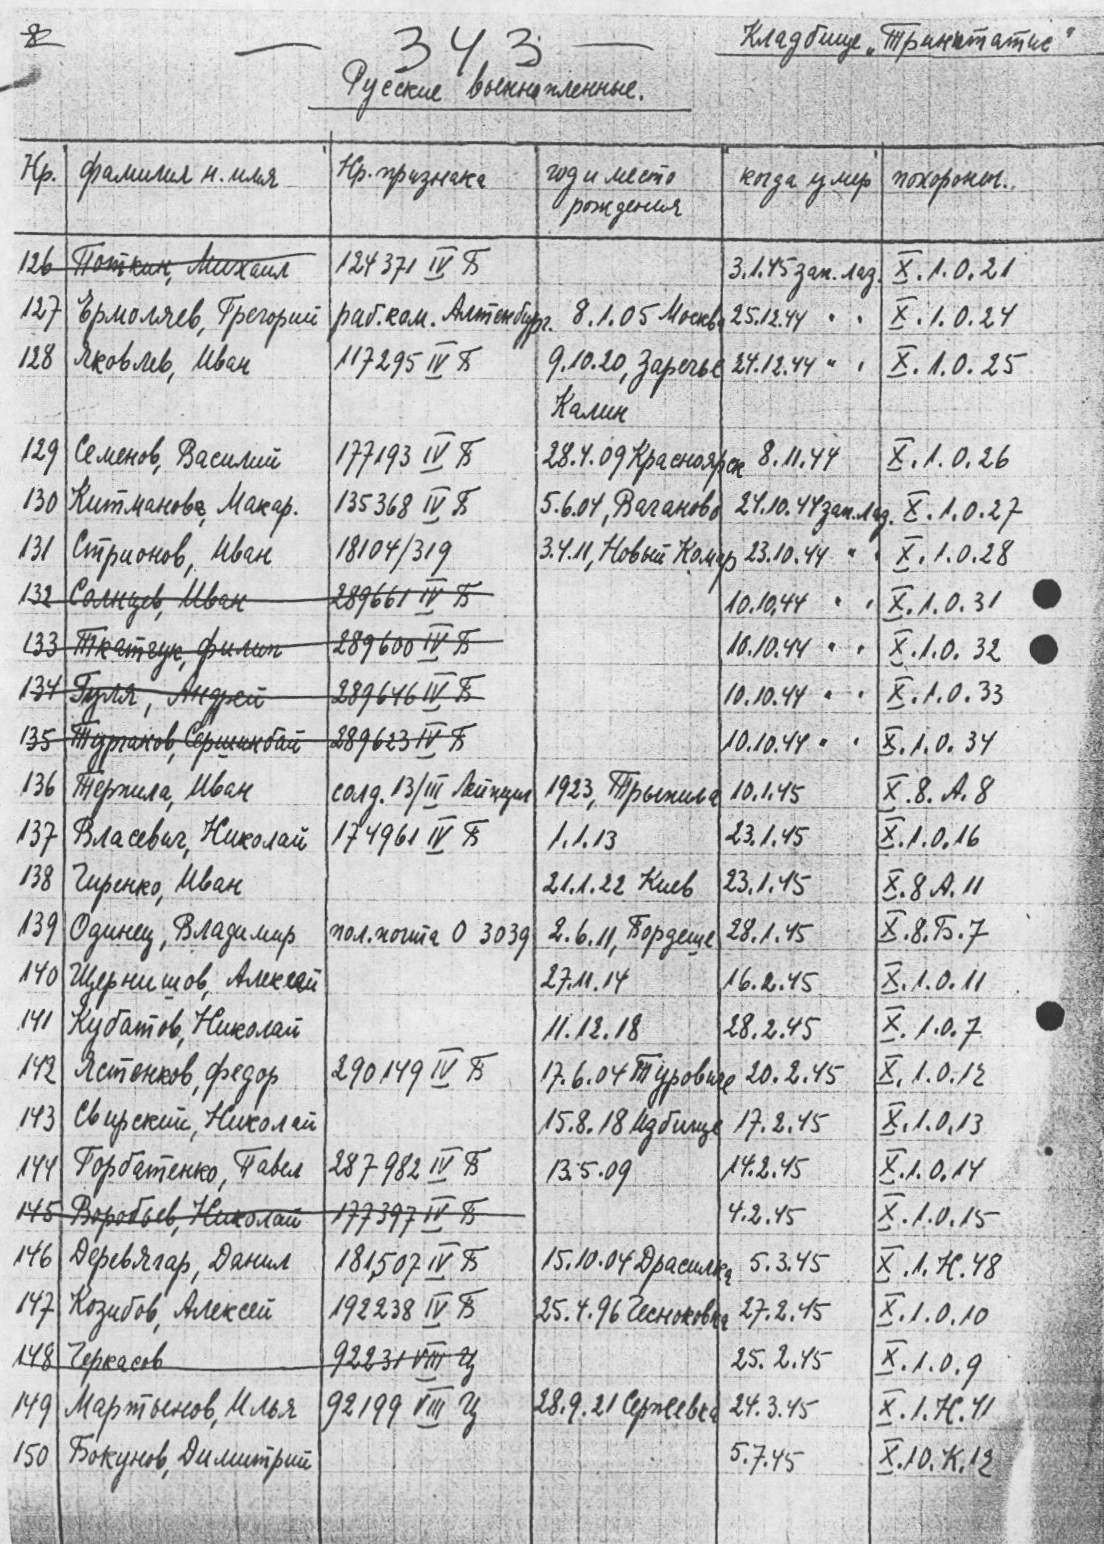 8
— 343 —
Кладбище „Тринитатис"
Русские военнопленные.
Нр. фамилия и. имя Нр. признака год и место рождения когда умер похоронен..
126 Поткин, Михаил 124371 IV Б 3.1.45 зап. лаз. X.1.0.21
127 Ермоляев, Грегорий раб. ком. Алтенбург. 8.1.05 Москва 25.12.44 " " X.1.0.24
128 Яковлев, Иван 117295 IV Б 9.10.20, Заречье 24.12.44 " " X.1.0.25
Калин
129 Семенов, Василий 177193 IV Б 28.4.09 Красноярск 8.11.44 X.1.0.26
130 Китманова, Макар. 135368 IV Б 5.6.04, Ваганово 24.10.44 зап. лаз. X.1.0.27
131 Стрионов, Иван 18104/319 3.4.11, Новый Комар 23.10.44 " " X.1.0.28
132 Солнцев, Иван 289661 IV Б 10.10.44 " " X.1.0.31
133 Ткатчук, филип 289600 IV Б 10.10.44 " " X.1.0.32
134 Гуля, Андрей 289646 IV Б 10.10.44 " " X.1.0.33
135 Тургаков, Сершинбай 289623 IV Б 10.10.44 " " X.1.0.34
136 Тержила, Иван солд. 13/III Лейпциг 1923, Трыжила 10.1.45 X.8.А.8
137 Власевич, Николай 174961 IV Б 1.1.13 23.1.45 X.1.0.16
138 Чиренко, Иван 21.1.22 Киев 23.1.45 X.8 А.11
139 Одинец, Владимир пол. почта О 3039 2.6.11, Бордеще 28.1.45 X.8.Б.7
140 Щернишов, Алексай 27.11.14 16.2.45 X.1.0.11
141 Кубатов, Николай 11.12.18 28.2.45 X.1.0.7
142 Ястенков, федор 290149 IV Б 17.6.04 Туровиче 20.2.45 X.1.0.12
143 Свирский, Николай 15.8.18 Избище 17.2.45 X.1.0.13
144 Горбатенко, Павел 287982 IV Б 13.5.09 14.2.45 X.1.0.14
145 Воробьев, Николай 177397 IV Б 4.2.45 X.1.0.15
146 Деревягар, Данил 181507 IV Б 15.10.04 Драсилка 5.3.45 X.1.Н.48
147 Козибов, Алексей 192238 IV Б 25.4.96 Чесноковка 27.2.45 X.1.0.10
148 Черкасов 92231 VIII Ц 25.2.45 X.1.0.9
149 Мартынов, Илья 92199 VIII Ц 28.9.21 Сержевка 24.3.45 X.1.Н.41
150 Бокунов, Димитрий 5.7.45 X.10.К.12